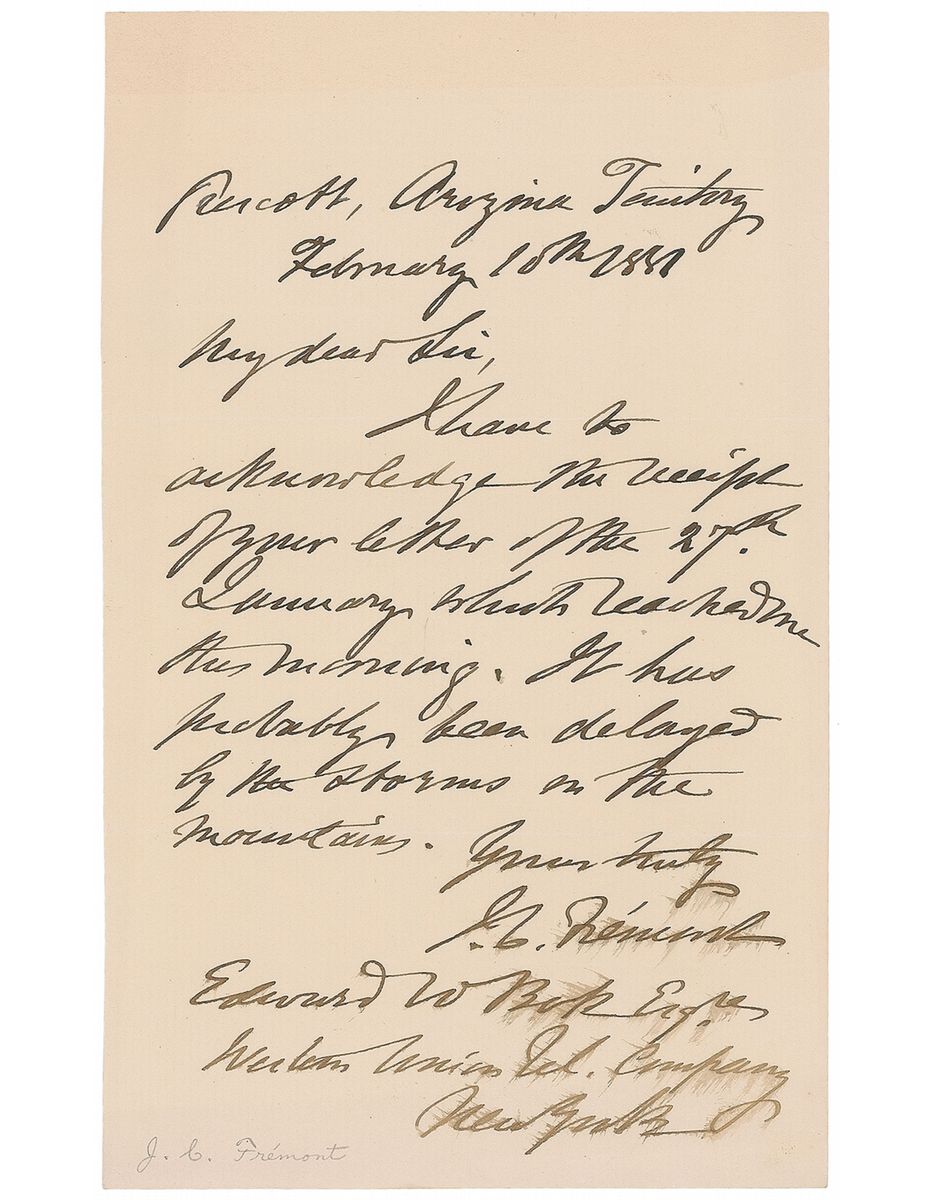 Prescott, Arizona Territory
February 10th 1881
My dear Sir,
I have to
acknowledge the receipt
of your letter of the 27th.
January, which reached me
this morning. It has
probably been delayed
by the storms in the
mountains.
Yours truly
J. C. Frémont
Edward W Bok Esqre
Western Union Tel. Company
New York
J. C. Frémont